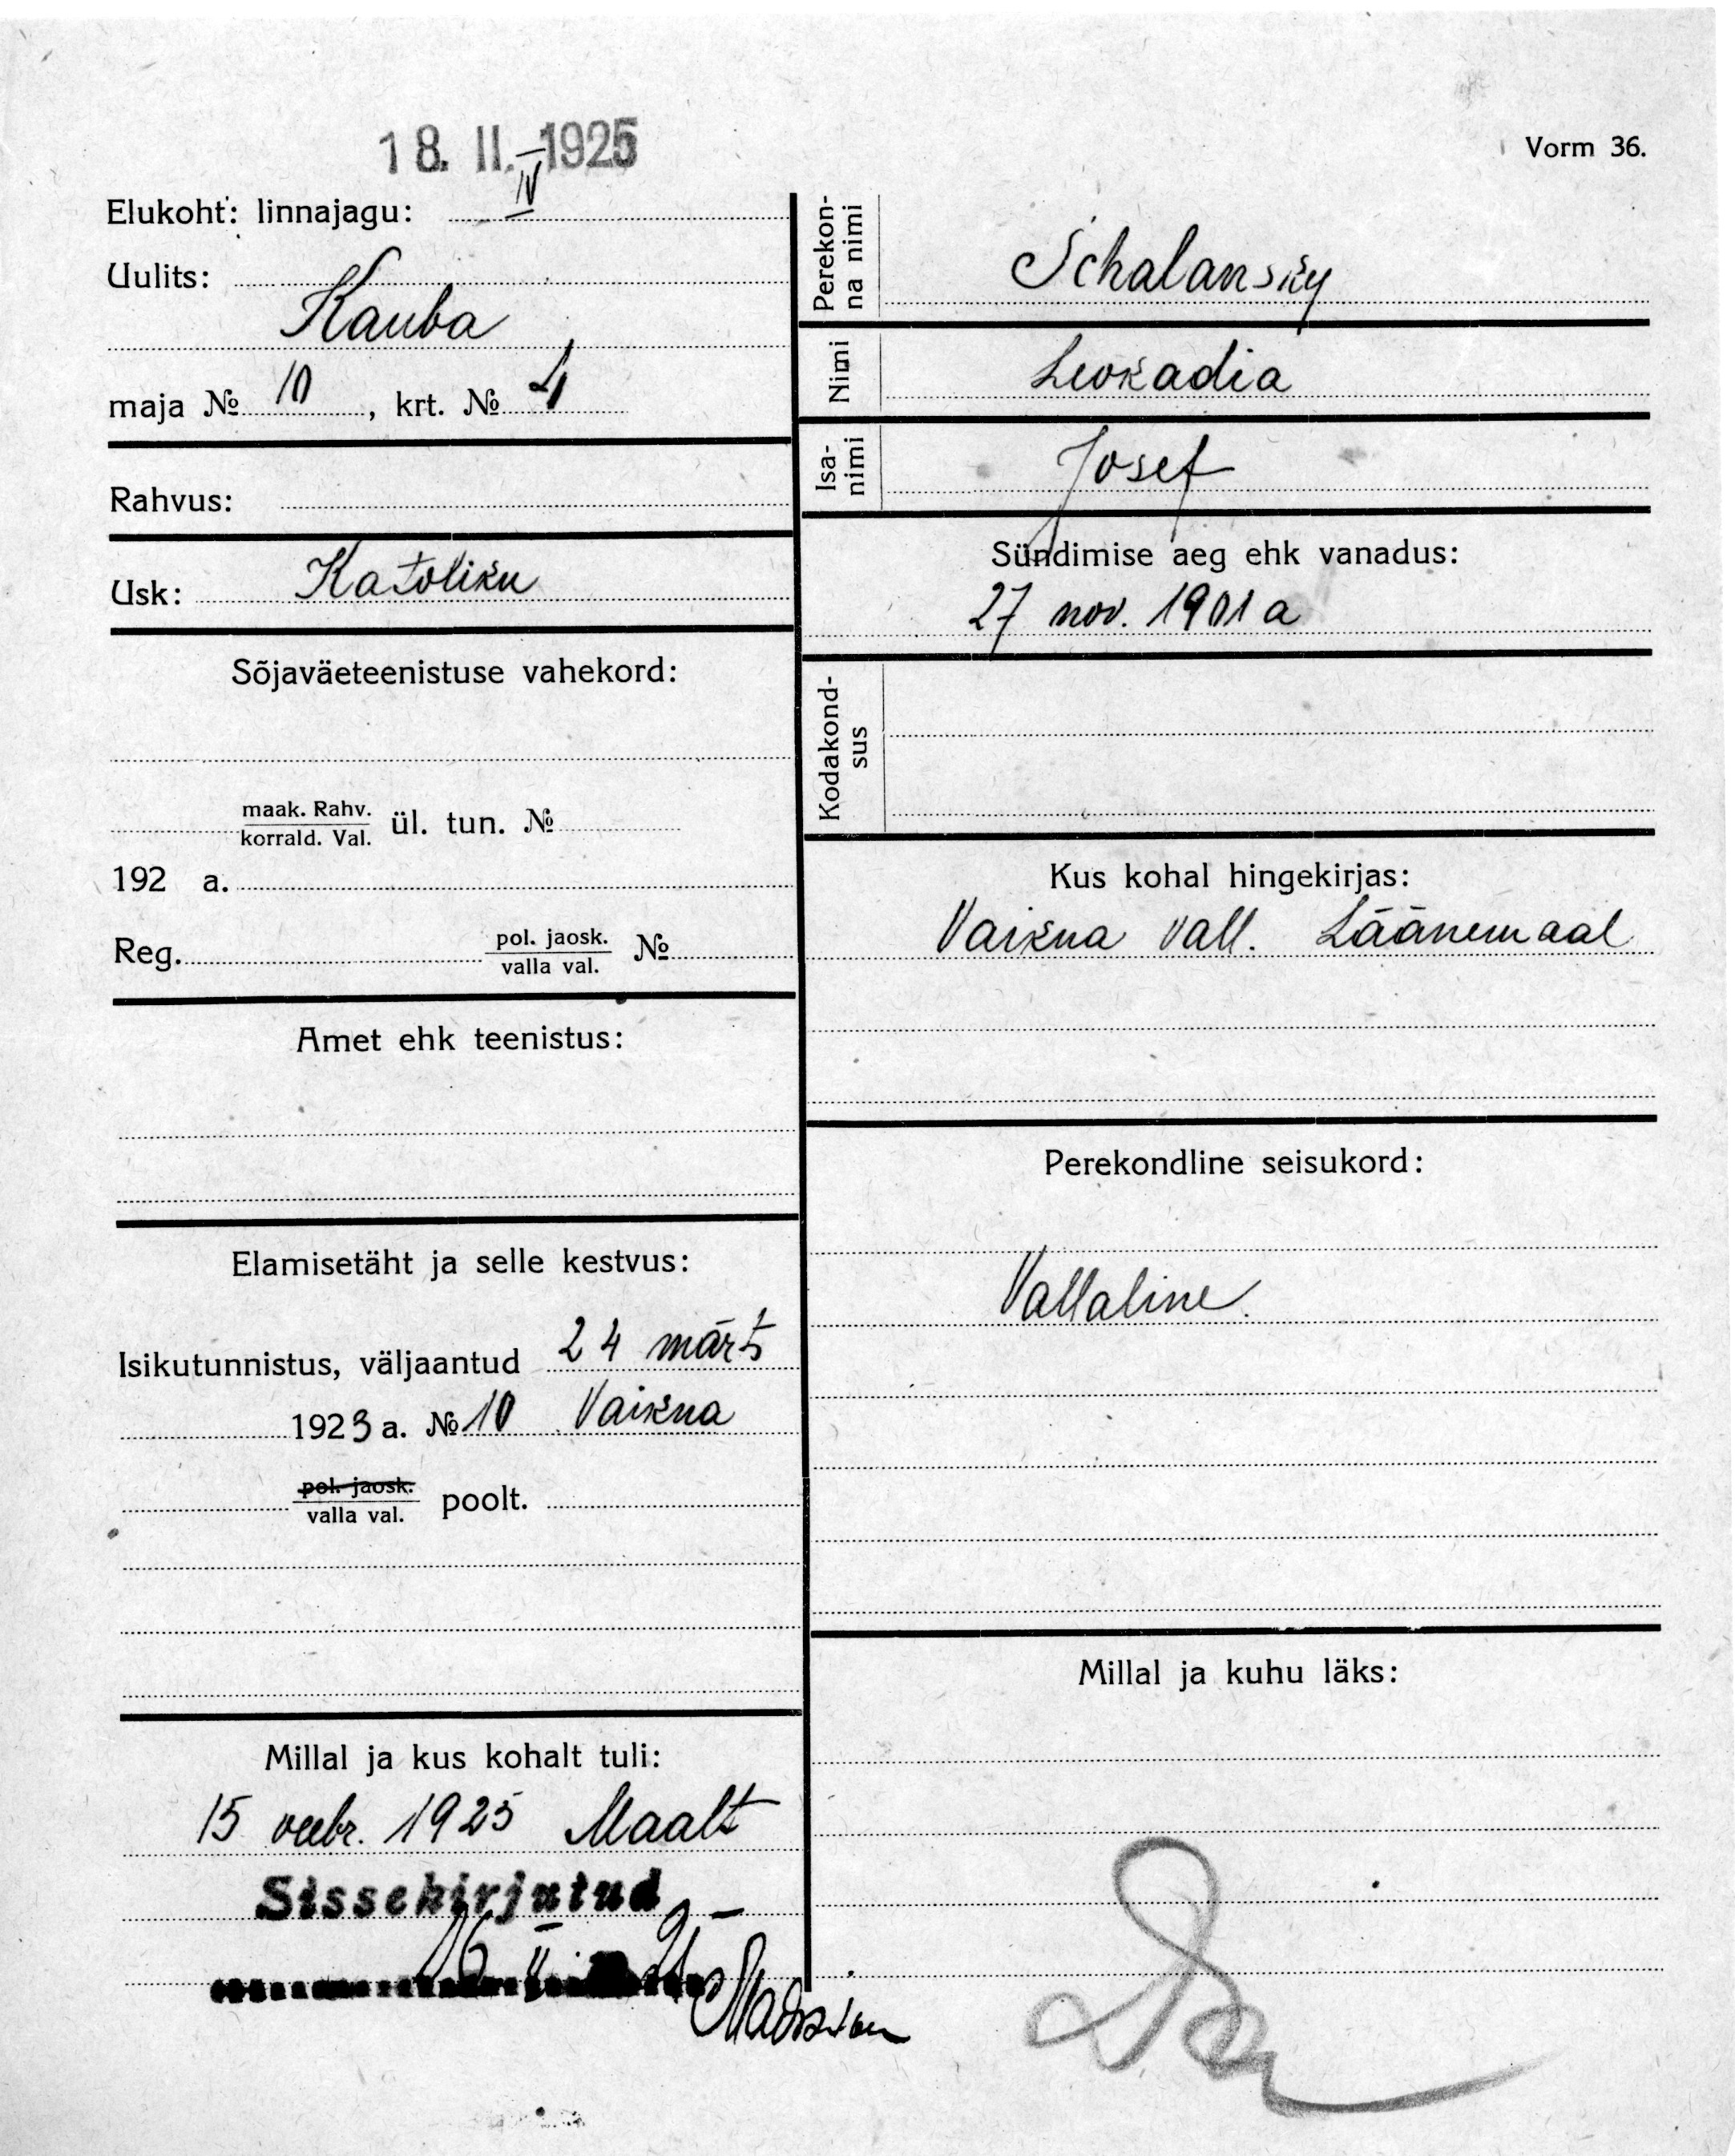 18. II. 1925
Vorm 36.
Elukoht: linnajagu: IV
Uulits:
Kauba
maja № 10, krt. № 4
Rahvus:
Usk: Katoliku
Sõjaväeteenistuse vahekord:
maak. Rahv.
korrald. Val. ül. tun. №
192 a.
Reg. pol. jaosk.
valla val. №
Amet ehk teenistus:
Elamisetäht ja selle kestvus:
Isikutunnistus, väljaantud 24 märts
1923 a. № 10 Vaikna
pol. jaosk.
valla val. poolt.
Millal ja kus kohalt tuli:
15 veebr. 1925 Maalt
Sissekirjutud
Perekon-
na nimi Schalansky
Nimi Leokadia
Isa-
nimi Josef
Sündimise aeg ehk vanadus:
27 nov. 1901 a
Kodakond-
sus
Kus kohal hingekirjas:
Vaikna vall. Läänemaal
Perekondline seisukord:
Vallaline.
Millal ja kuhu läks: